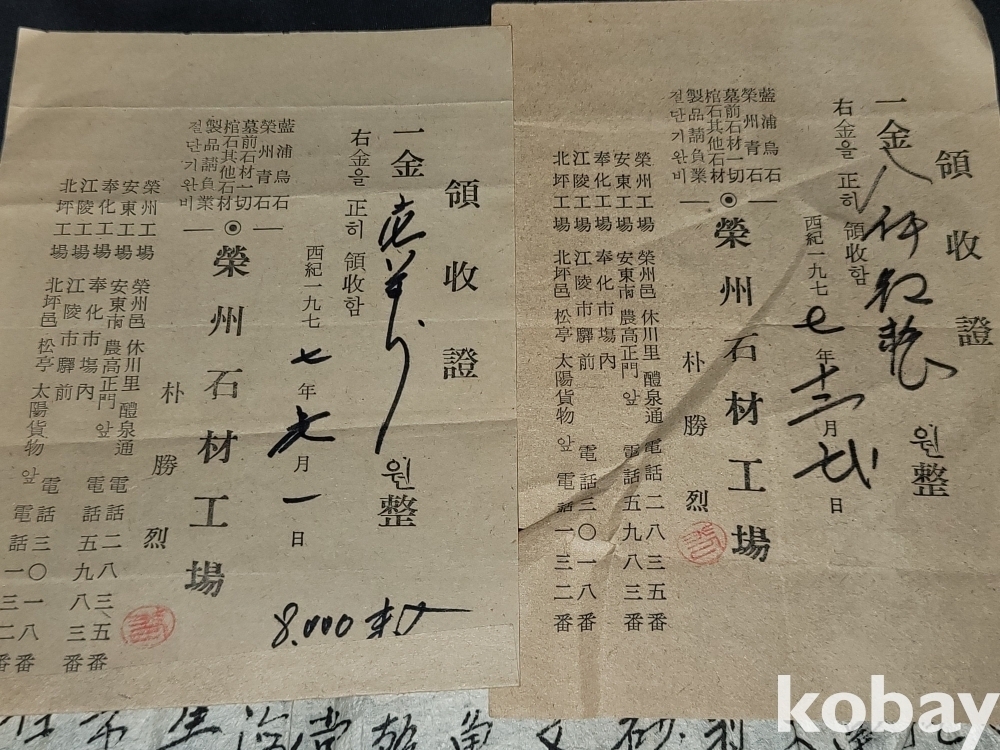 領收證
一金八仟 원整
右金을 正히 領收함
西紀一九七七年十二月 日
藍浦烏石
榮州青石
墓前石材一切
棺石其他石材
製品請負業
절단기완비
榮州石材工場
朴勝烈
榮州工場 榮州邑 休川里 醴泉通 電話二八三五番
安東工場 安東市 農高正門 앞 電話五九八三番
奉化工場 奉化市場內
江陵工場 江陵市驛前 電話三〇一八番
北坪工場 北坪邑 松亭 太陽貨物 앞 電話一三二番
領收證
一金 원整
右金을 正히 領收함
西紀一九七七年 月一日
藍浦烏石
榮州青石
墓前石材一切
棺石其他石材
製品請負業
절단기완비
榮州石材工場
朴勝烈
榮州工場 榮州邑 休川里 醴泉通 電話二八三五番
安東工場 安東市 農高正門 앞 電話五九八三番
奉化工場 奉化市場內
江陵工場 江陵市驛前 電話三〇一八番
北坪工場 北坪邑 松亭 太陽貨物 앞 電話一三二番
8.000
kobay